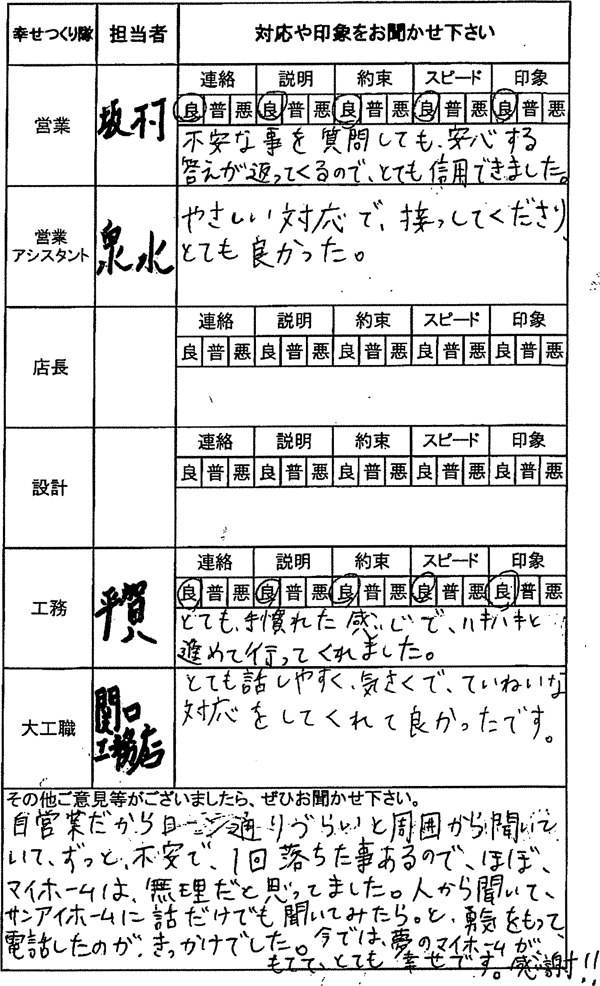 幸せつくり隊 担当者 対応や印象をお聞かせ下さい
営業 坂村 連絡 説明 約束 スピード 印象
良 普 悪 良 普 悪 良 普 悪 良 普 悪 良 普 悪
不安な事を質問しても、安心する
答えが返ってくるので、とても信用できました。
営業アシスタント 泉水 やさしい対応で、接っしてくださり、
とても良かった。
店長 連絡 説明 約束 スピード 印象
良 普 悪 良 普 悪 良 普 悪 良 普 悪 良 普 悪
設計 連絡 説明 約束 スピード 印象
良 普 悪 良 普 悪 良 普 悪 良 普 悪 良 普 悪
工務 平賀 連絡 説明 約束 スピード 印象
良 普 悪 良 普 悪 良 普 悪 良 普 悪 良 普 悪
とても、手慣れた感じで、ハキハキと
進めて行ってくれました。
大工職 関口工務店 とても話しやすく、気さくで、ていねいな
対応をしてくれて良かったです。
その他ご意見等がございましたら、ぜひお聞かせ下さい。
自営業だからローン通りづらいと周囲から聞いて
いて、ずっと、不安で、1回落ちた事あるので、ほぼ、
マイホームは、無理だと思ってました。人から聞いて、
サンアイホームに話だけでも聞いてみたら。と、勇気をもって、
電話したのが、きっかけでした。今では、夢のマイホームが、
もてて、とても幸せです。感謝!!